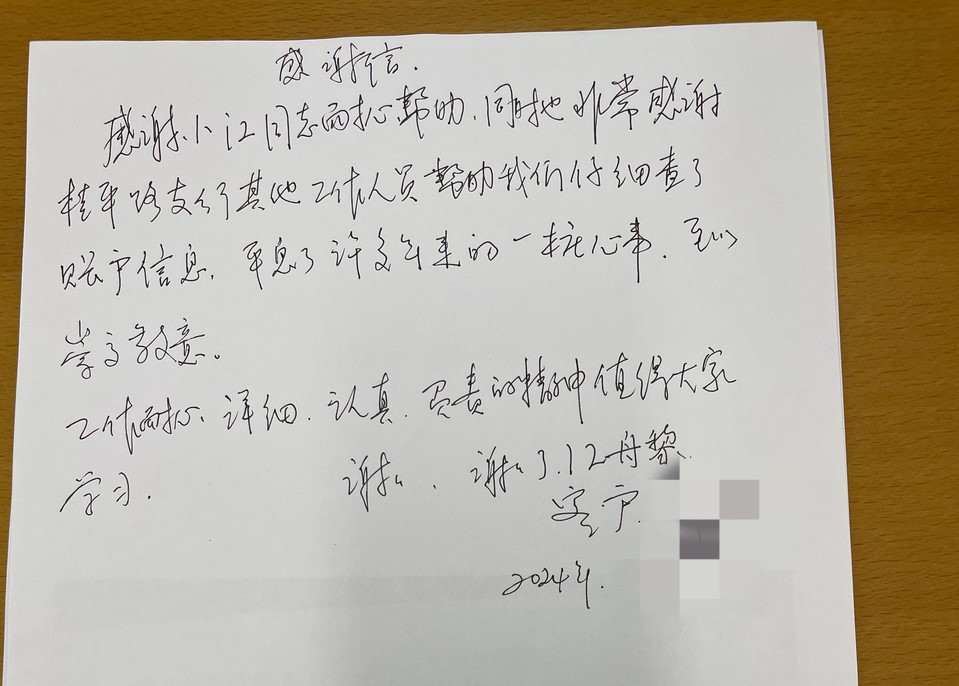 感谢信.
感谢小江同志耐心帮助.同时也非常感谢
桂平路支行其他工作人员帮助我们仔细查了
账户信息.平息了许多年来的一桩心事.致以
崇高敬意。
工作耐心、详细.认真.负责的精神值得大家
学习.
谢谢、谢谢
客户
2024年.